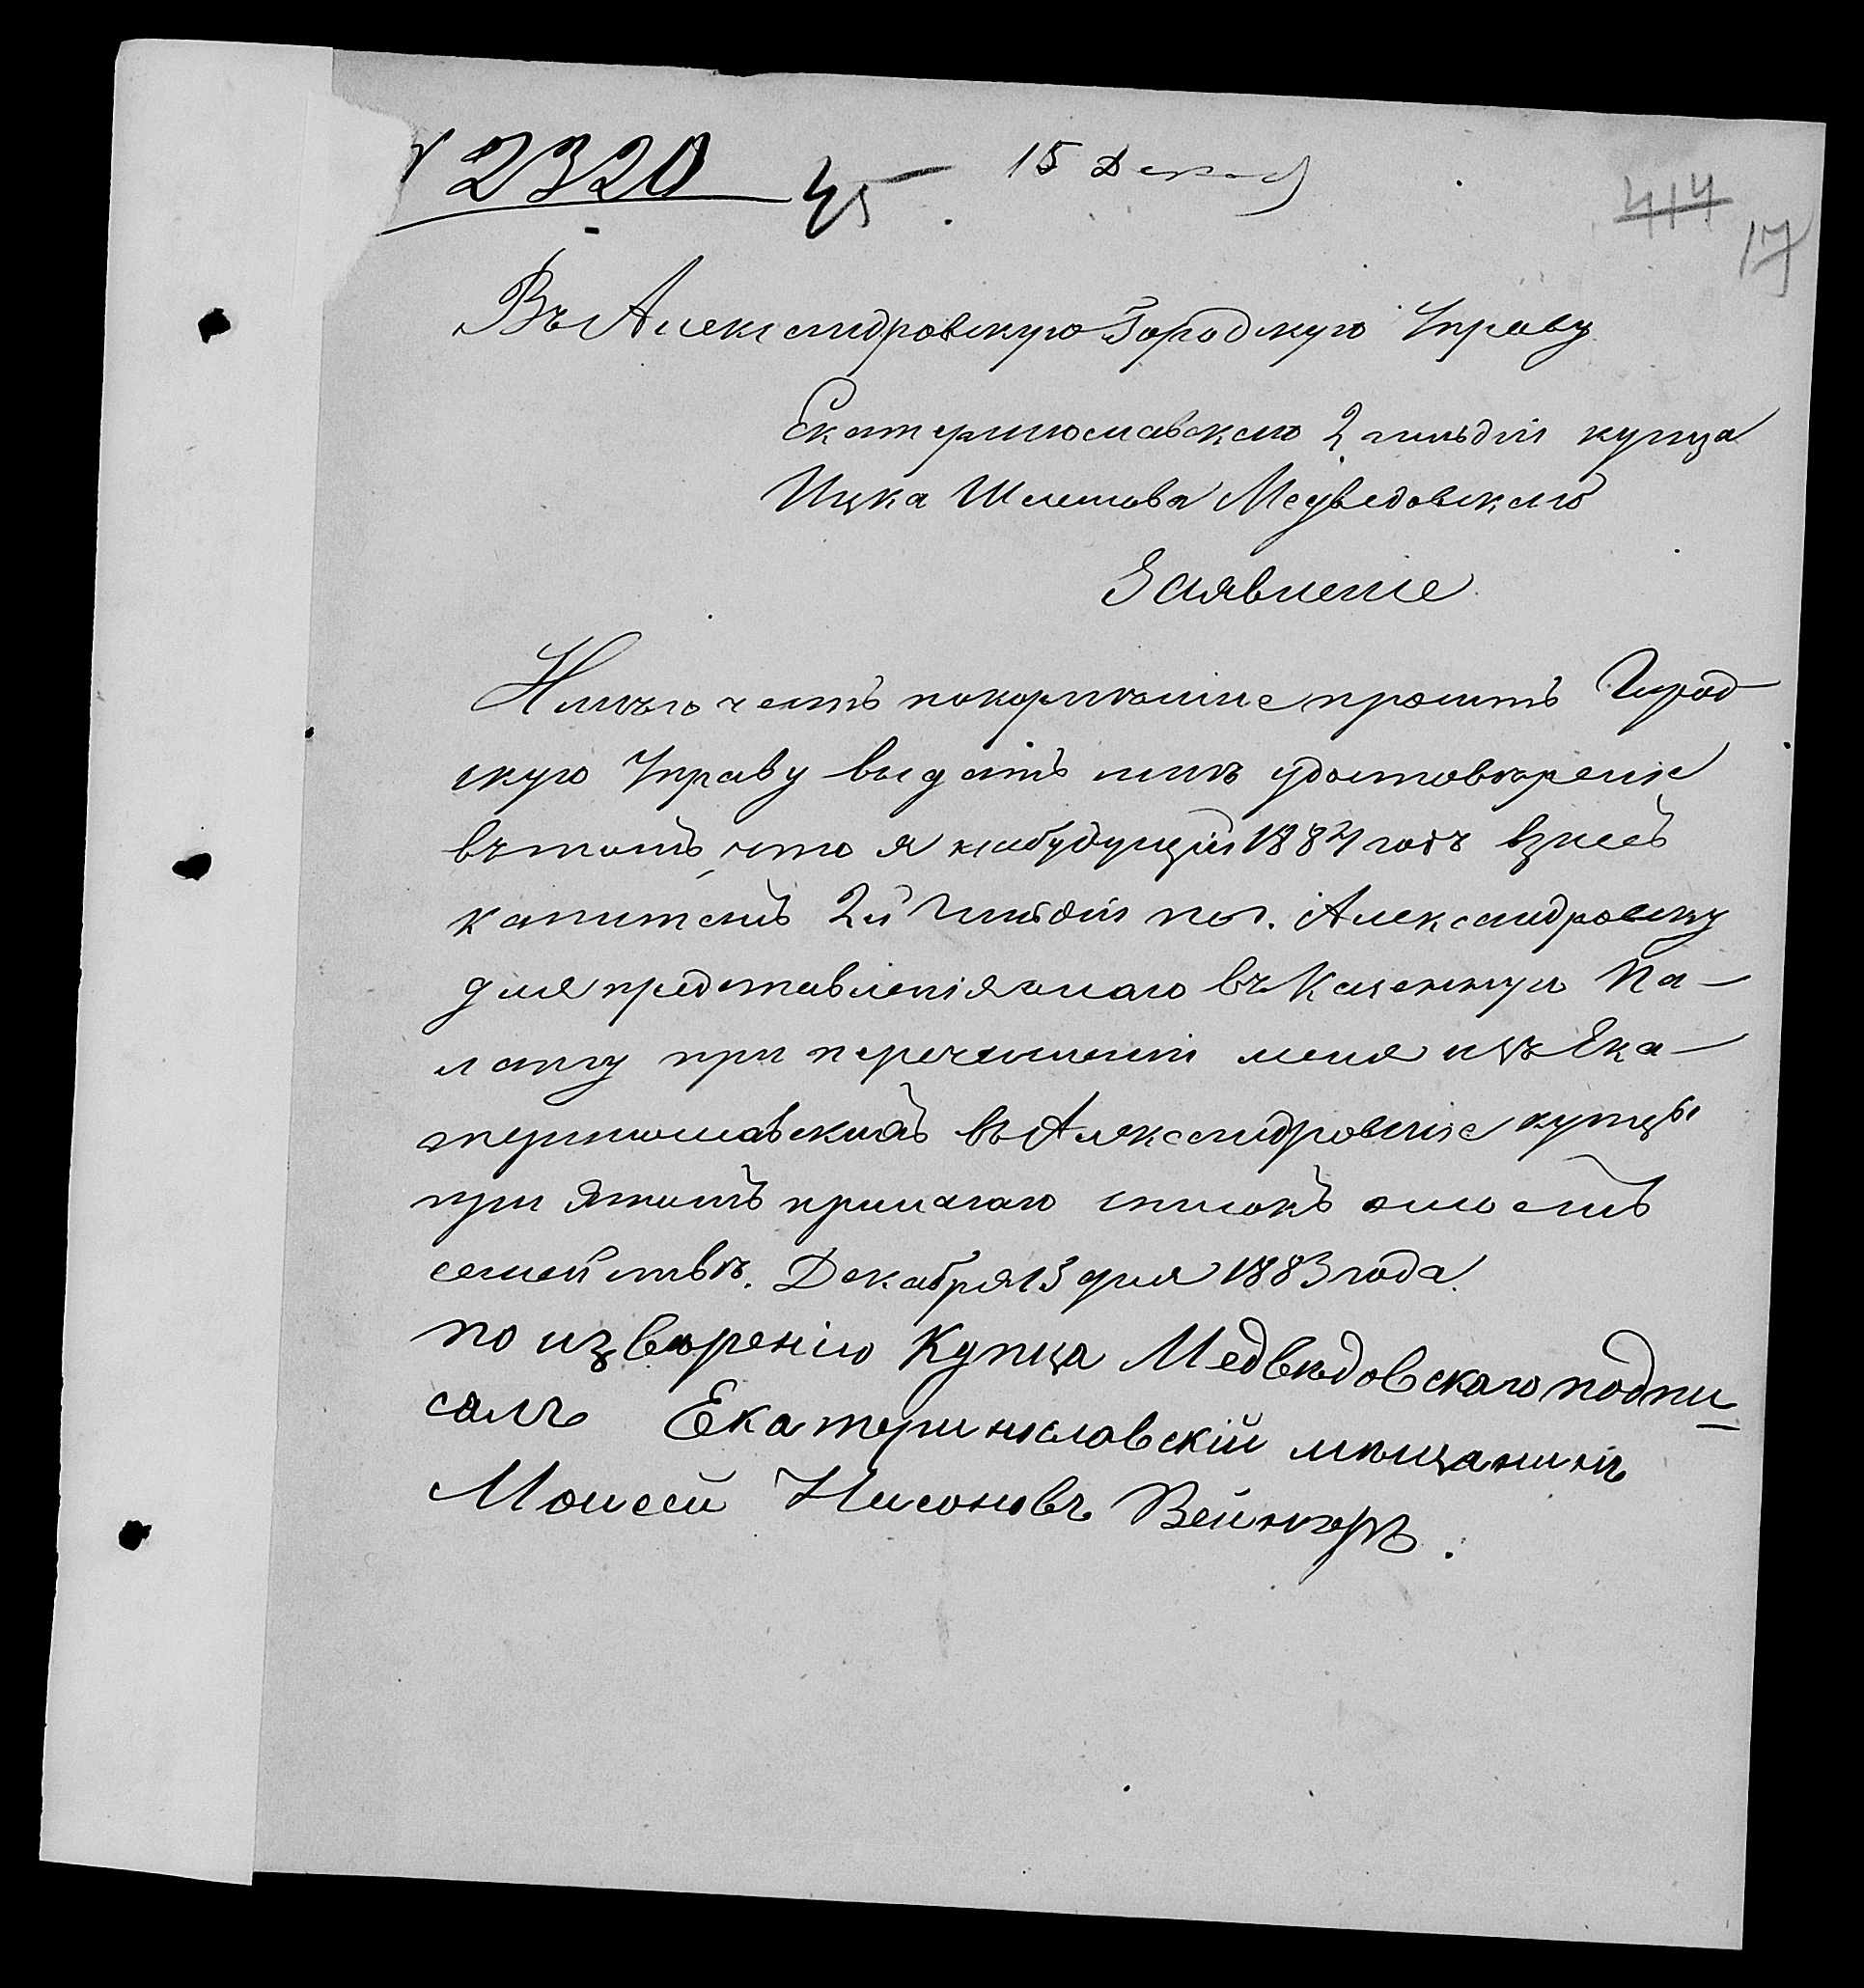 № 2320 45. 15 Декаб
414
17
Въ Александровскую Городскую Управу
Екатеринославскаго 2 гильдіи купца
Ицка Шлемова Медведовскаго
Заявленіе
Имѣю честь покорнѣйше просить Город
скую Управу выдать мнѣ удостовѣреніе
въ томъ, что я на будущій 1884 годъ взнесъ
капиталъ 2й Гильдіи по г. Александровску
для представленія онаго въ Казенную Па-
лату при перечисленіи меня изъ Ека-
теринославскихъ въ Александровскіе купцы
при этомъ прилагаю списокъ о моемъ
семействѣ. Декабря 13 дня 1883 года
по из верѣнію Купца Медвѣдовскаго подпи
салъ Екатеринославскій мѣщанинъ
Моисей Нисоновъ Вейнеръ.